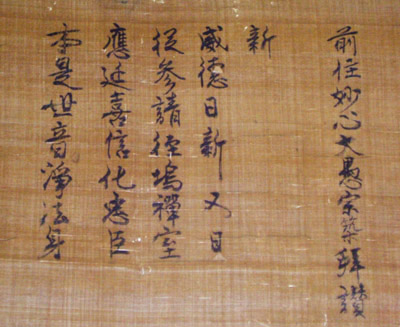 本是世音淨法身
應廷喜信化忠臣
從參請徑塢禪室
威德日新又日
新
前住妙心大愚宗築拜讚